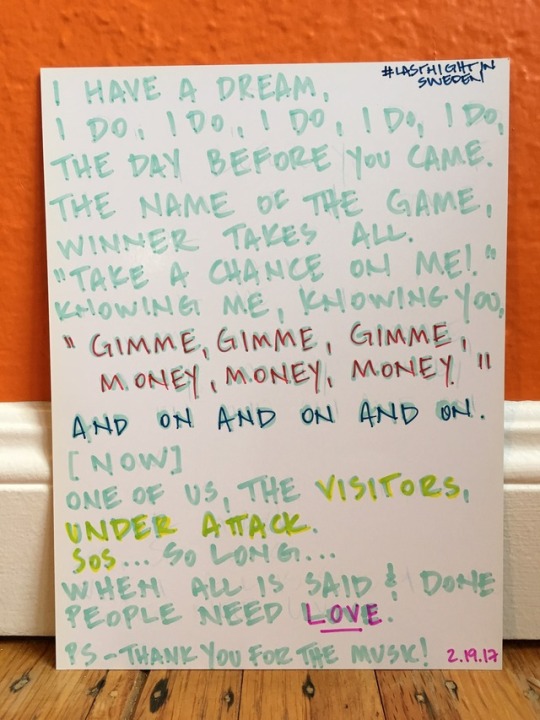 #LASTNIGHTIN
SWEDEN
I HAVE A DREAM,
I DO, I DO, I DO, I DO, I DO,
THE DAY BEFORE YOU CAME.
THE NAME OF THE GAME,
WINNER TAKES ALL.
"TAKE A CHANCE ON ME!"
KNOWING ME, KNOWING YOU,
"GIMME, GIMME, GIMME,
MONEY, MONEY, MONEY."
AND ON AND ON AND ON.
[NOW]
ONE OF US, THE VISITORS,
UNDER ATTACK.
SOS... SO LONG...
WHEN ALL IS SAID & DONE
PEOPLE NEED LOVE.
PS-THANK YOU FOR THE MUSIC!
2.19.17